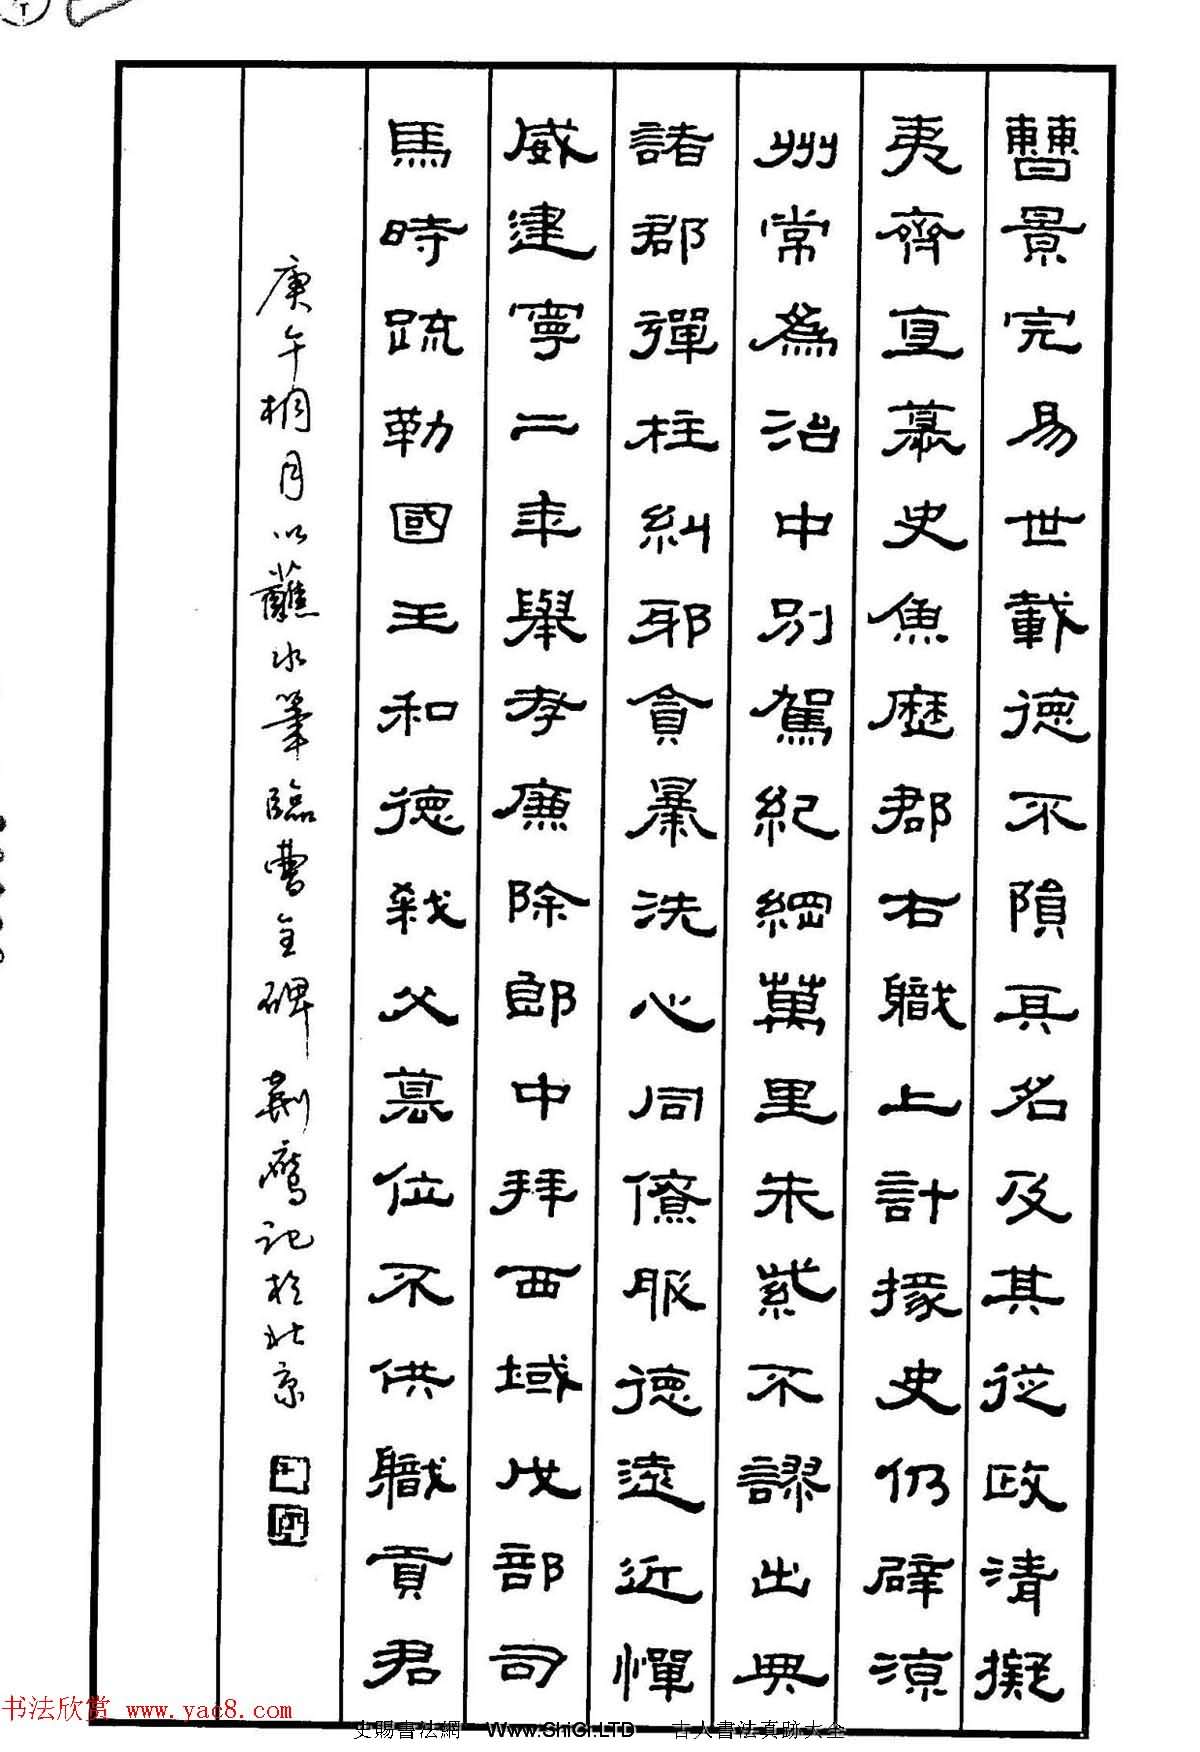 曹景完易世載德不隕其名及其從政清擬
夷齊直慕史魚歷郡右職上計掾史仍辟涼
州常為治中別駕紀綱萬里朱紫不謬出典
諸郡彈枉糾邪貪暴洗心同僚服德遠近憚
威建寧二年舉孝廉除郎中拜西域戊部司
馬時疏勒國王和德弒父篡位不供職貢君
庚午桐月以蘸水筆臨曹全碑荊鷹記於北京
书法欣赏 www.yac8.com
史賜書法網 Www.ShiCi.LTD 古人書法真跡大全